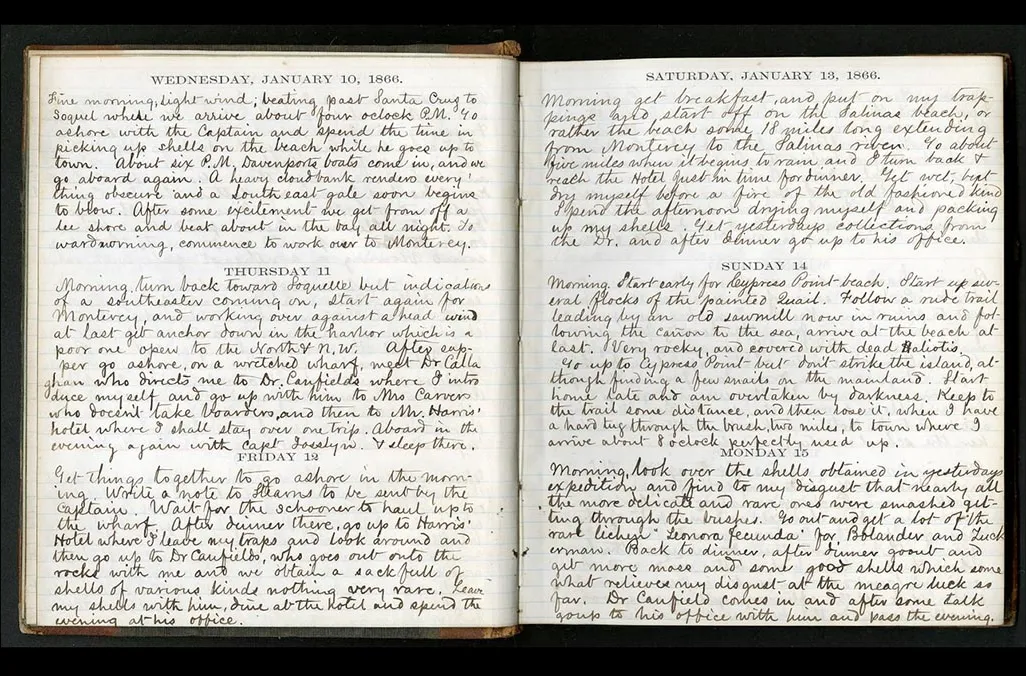 WEDNESDAY, JANUARY 10, 1866.
Fine morning, light wind; beating past Santa Cruz to
Soquel while we arrive about four oclock P.M. Go
ashore with the Captain and spend the time in
picking up shells on the beach while he goes up to
town. About six P.M. Davenports boats come in, and we
go aboard again. A heavy cloudbank renders every
thing obscure and a South east gale soon begins
to blow. After some excitement we get from off a
lee shore and beat about in the bay all night. To
ward morning, commence to work over to Monterey.
THURSDAY 11
Morning, turn back toward Soquelle but indications
of a southeaster coming on, start again for
Monterey, and working over against a head wind
at last get anchor down in the harbor which is a
poor one open to the North & N.W. After sup-
per go ashore, on a wretched wharf, meet Dr Calla
ghan who directs me to Dr. Canfields where I intro
duce myself, and go up with him to Mrs Carvers
who doesnt take boarders, and then to Mr. Harris'
hotel where I shall stay over one trip. Aboard in the
evening again with Capt Josslyn. & sleep there.
FRIDAY 12
Get things together to go ashore in the morn-
ing. Write a note to Hearns to be sent by the
Captain. Wait for the schooner to haul up to
the wharf. After dinner there, go up to Harris'
Hotel where I leave my traps and look around and
then go up to Dr Canfields, who goes out onto the
rocks with me and we obtain a sack full of
shells of various kinds nothing very rare. Leave
my shells with him, dine at the hotel and spend the
evening at his office.
SATURDAY, JANUARY 13, 1866.
Morning get breakfast, and put on my trap-
pings and start off on the Salinas beach, or
rather the beach some 18 miles long extending
from Monterey to the Salinas river. Go about
five miles when it begins to rain, and I turn back &
reach the Hotel just in time for dinner. Get wet, but
dry myself before a fire of the old fashioned kind
I spend the afternoon drying myself and packing
up my shells. Get yesterdays collections from
the Dr. and after dinner go up to his office.
SUNDAY 14
Morning Start early for Cypress Point beach. Start up sev-
eral flocks of the painted Quail. Follow a rude trail
leading by an old sawmill now in ruins and fol-
lowing the cañon to the sea, arrive at the beach at
last. Very rocky, and covered with dead Haliotis.
Go up to Cypress Point but dont strike the island, al-
though finding a few snails on the mainland. Start
home late and am overtaken by darkness. Keep to
the trail some distance, and then lose it, when I have
a hard tug through the brush, two miles, to town where I
arrive about 8 oclock perfectly used up.
MONDAY 15
Morning, look over the shells obtained in yesterdays
expedition and find to my disgust that nearly all
the more delicate and rare ones were smashed get-
ting through the bushes. Go out and get a lot of the
rare lichen "Leonora fecunda" for Bolander and Tuck
erman. Back to dinner, after dinner go out and
get more moss and some good shells which some
what relieves my disgust at the meagre luck so
far. Dr Canfield comes in and after some talk
go up to his office with him and pass the evening.